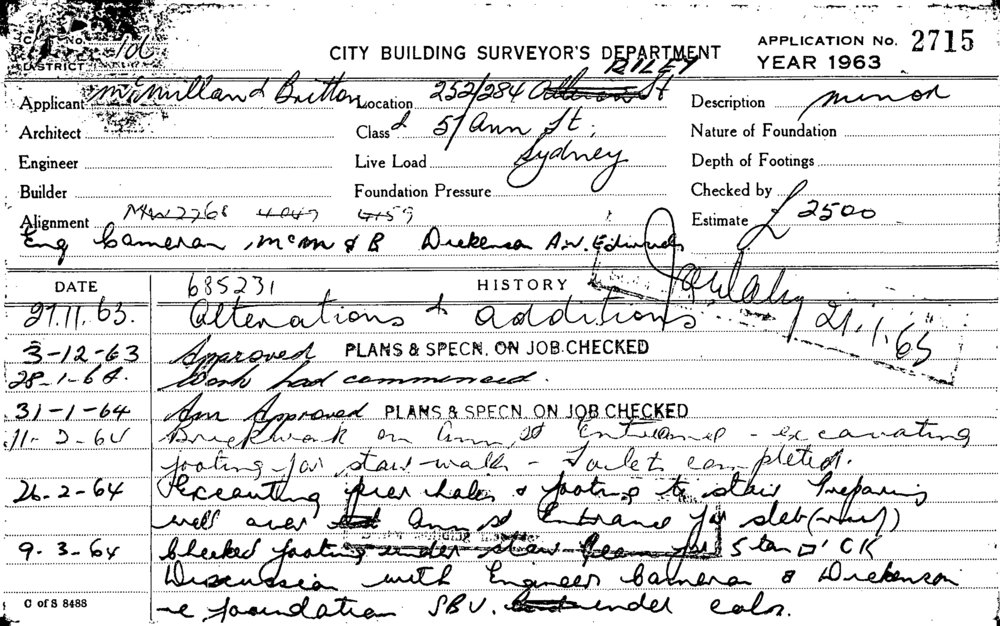 C No.
DISTRICT
CITY BUILDING SURVEYOR'S DEPARTMENT
APPLICATION No. 2715
YEAR 1963
RILEY
Applicant McMillan & Britton
Location 252/284 St
Description minor
Architect
Class & 51 Ann St,
Nature of Foundation
Engineer
Live Load Sydney
Depth of Footings
Builder
Foundation Pressure
Checked by
Alignment 4047 4159
Estimate £2500
Eng Cameran, McM & B Dickenson A.W. Edwards
DATE
HISTORY
685231
27.11.63. Alterations & additions
21.1.65
3-12-63 Approved PLANS & SPECN. ON JOB CHECKED
28-1-64. Work had commenced.
31-1-64 Am Approved PLANS & SPECN. ON JOB CHECKED
11-2-64 Brickwork on Ann St Entrance - excavating
footing for stair-walls - Toilets completed.
26-2-64 Excavating pier holes & footing to stair Preparing
well over Ann St Entrance for slab
9.3.64 Checked footing under stair for OK
Discussion with Engineer Cameran & Dickenson
re foundation SBV. under color.
C of S 8488